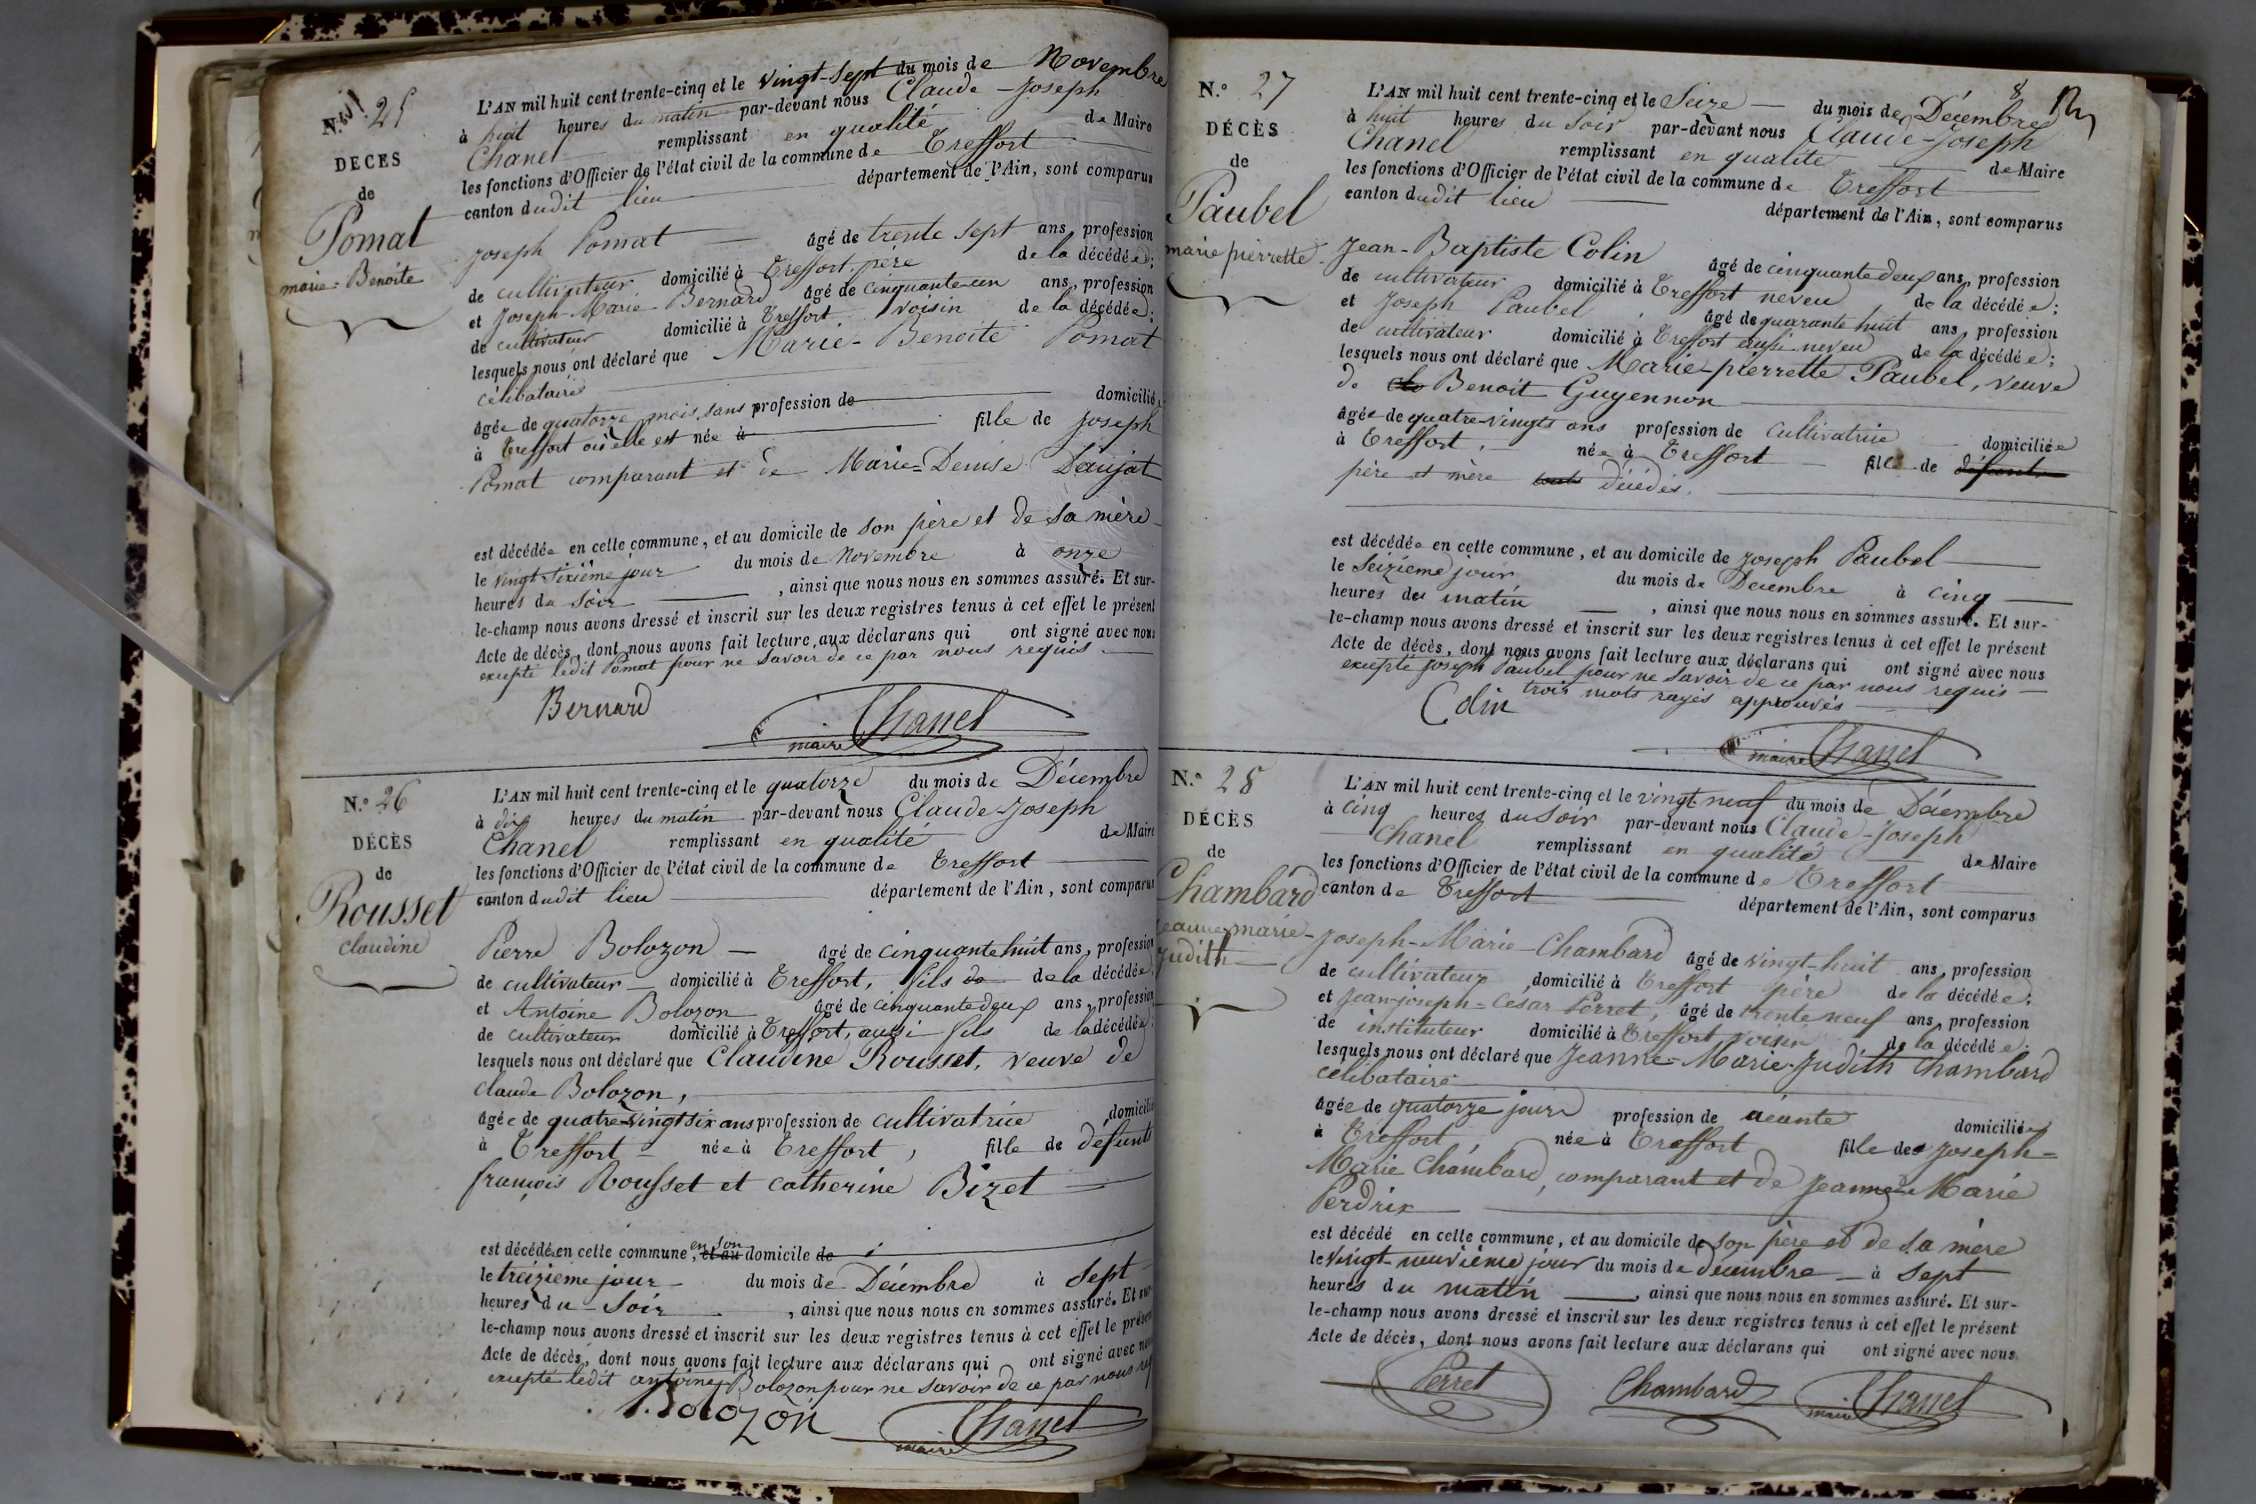 N.° 25
DÉCÈS
de
Pomat
marie-Benoite
L'AN mil huit cent trente-cinq et le vingt-sept du mois de Novembre
à huit heures du matin par-devant nous Claude-Joseph
Chanel remplissant en qualité de Maire
les fonctions d'Officier de l'état civil de la commune de Treffort
canton dudit lieu département de l'Ain, sont comparus
Joseph Pomat âgé de trente sept ans, profession
de cultivateur domicilié à Treffort père de la décédée;
et Joseph-Marie Bernard âgé de cinquante-un ans, profession
de cultivateur domicilié à Treffort voisin de la décédée;
lesquels nous ont déclaré que Marie-Benoite Pomat
célibataire
âgée de quatorze mois, sans profession de domiciliée
à Treffort où elle est née à fille de Joseph
Pomat comparant et de Marie-Denise Daujat
est décédée en cette commune, et au domicile de son père et de sa mère
le vingt-sixième jour du mois de Novembre à onze
heures du soir, ainsi que nous nous en sommes assuré. Et sur-
le-champ nous avons dressé et inscrit sur les deux registres tenus à cet effet le présent
Acte de décès, dont nous avons fait lecture aux déclarans qui ont signé avec nous
excepté ledit Pomat pour ne savoir de ce par nous requis.
Bernard
Chanel
maire
N.° 26
DÉCÈS
de
Rousset
claudine
L'AN mil huit cent trente-cinq et le quatorze du mois de Décembre
à dix heures du matin par-devant nous Claude-Joseph
Chanel remplissant en qualité de Maire
les fonctions d'Officier de l'état civil de la commune de Treffort
canton dudit lieu département de l'Ain, sont comparus
Pierre Bolozon âgé de cinquante huit ans, profession
de cultivateur domicilié à Treffort, fils de de la décédée;
et Antoine Bolozon âgé de cinquante deux ans, profession
de cultivateur domicilié à Treffort, aussi fils de la décédée;
lesquels nous ont déclaré que Claudine Rousset, veuve de
claude Bolozon,
âgée de quatre-vingt six ans profession de cultivatrice domiciliée
à Treffort née à Treffort, fille de défunts
françois Rousset et catherine Bizet
est décédée en cette commune, et au en son domicile de
le treizième jour du mois de Décembre à sept
heures du soir, ainsi que nous nous en sommes assuré. Et sur-
le-champ nous avons dressé et inscrit sur les deux registres tenus à cet effet le présent
Acte de décès, dont nous avons fait lecture aux déclarans qui ont signé avec nous
excepté ledit antoine Bolozon pour ne savoir de ce par nous req
Bolozon
Chanel
maire
8
N.° 27
DÉCÈS
de
Paubel
marie pierrette
L'AN mil huit cent trente-cinq et le Seize du mois de Décembre
à huit heures du soir par-devant nous Claude-Joseph
Chanel remplissant en qualité de Maire
les fonctions d'Officier de l'état civil de la commune de Treffort
canton dudit lieu département de l'Ain, sont comparus
Jean-Baptiste Colin âgé de cinquante deux ans, profession
de cultivateur domicilié à Treffort neveu de la décédée;
et Joseph Paubel âgé de quarante huit ans, profession
de cultivateur domicilié à Treffort aussi neveu de la décédée;
lesquels nous ont déclaré que Marie-pierrette Paubel, veuve
de Benoit Guyennon
âgée de quatre-vingts ans profession de cultivatrice domiciliée
à Treffort, née à Treffort fille de défunts
père et mère décédés.
est décédée en cette commune, et au domicile de Joseph Paubel
le seizième jour du mois de Décembre à cinq
heures du matin, ainsi que nous nous en sommes assuré. Et sur-
le-champ nous avons dressé et inscrit sur les deux registres tenus à cet effet le présent
Acte de décès, dont nous avons fait lecture aux déclarans qui ont signé avec nous
excepté Joseph Paubel pour ne savoir de ce par nous requis
trois mots rayés approuvés
Colin
Chanel
maire
N.° 28
DÉCÈS
de
Chambard
jeanne marie-
judith
L'AN mil huit cent trente-cinq et le vingt-neuf du mois de Décembre
à cinq heures du soir par-devant nous Claude-Joseph
Chanel remplissant en qualité de Maire
les fonctions d'Officier de l'état civil de la commune de Treffort
canton de Treffort département de l'Ain, sont comparus
Joseph-Marie-Chambard âgé de vingt-huit ans, profession
de cultivateur domicilié à Treffort père de la décédée;
et Jean-joseph-César Perret, âgé de trente neuf ans, profession
de instituteur domicilié à Treffort voisin de la décédée;
lesquels nous ont déclaré que Jeanne-Marie-Judith Chambard
célibataire
âgée de quatorze jours profession de néante domiciliée
à Treffort, née à Treffort fille de Joseph-
Marie Chambard, comparant et de Jeanne-Marie
Perdrix
est décédé en cette commune, et au domicile de son père et de sa mère
le vingt-neuvième jour du mois de Décembre à sept
heures du matin, ainsi que nous nous en sommes assuré. Et sur-
le-champ nous avons dressé et inscrit sur les deux registres tenus à cet effet le présent
Acte de décès, dont nous avons fait lecture aux déclarans qui ont signé avec nous
Perret
Chambard
Chanel
maire